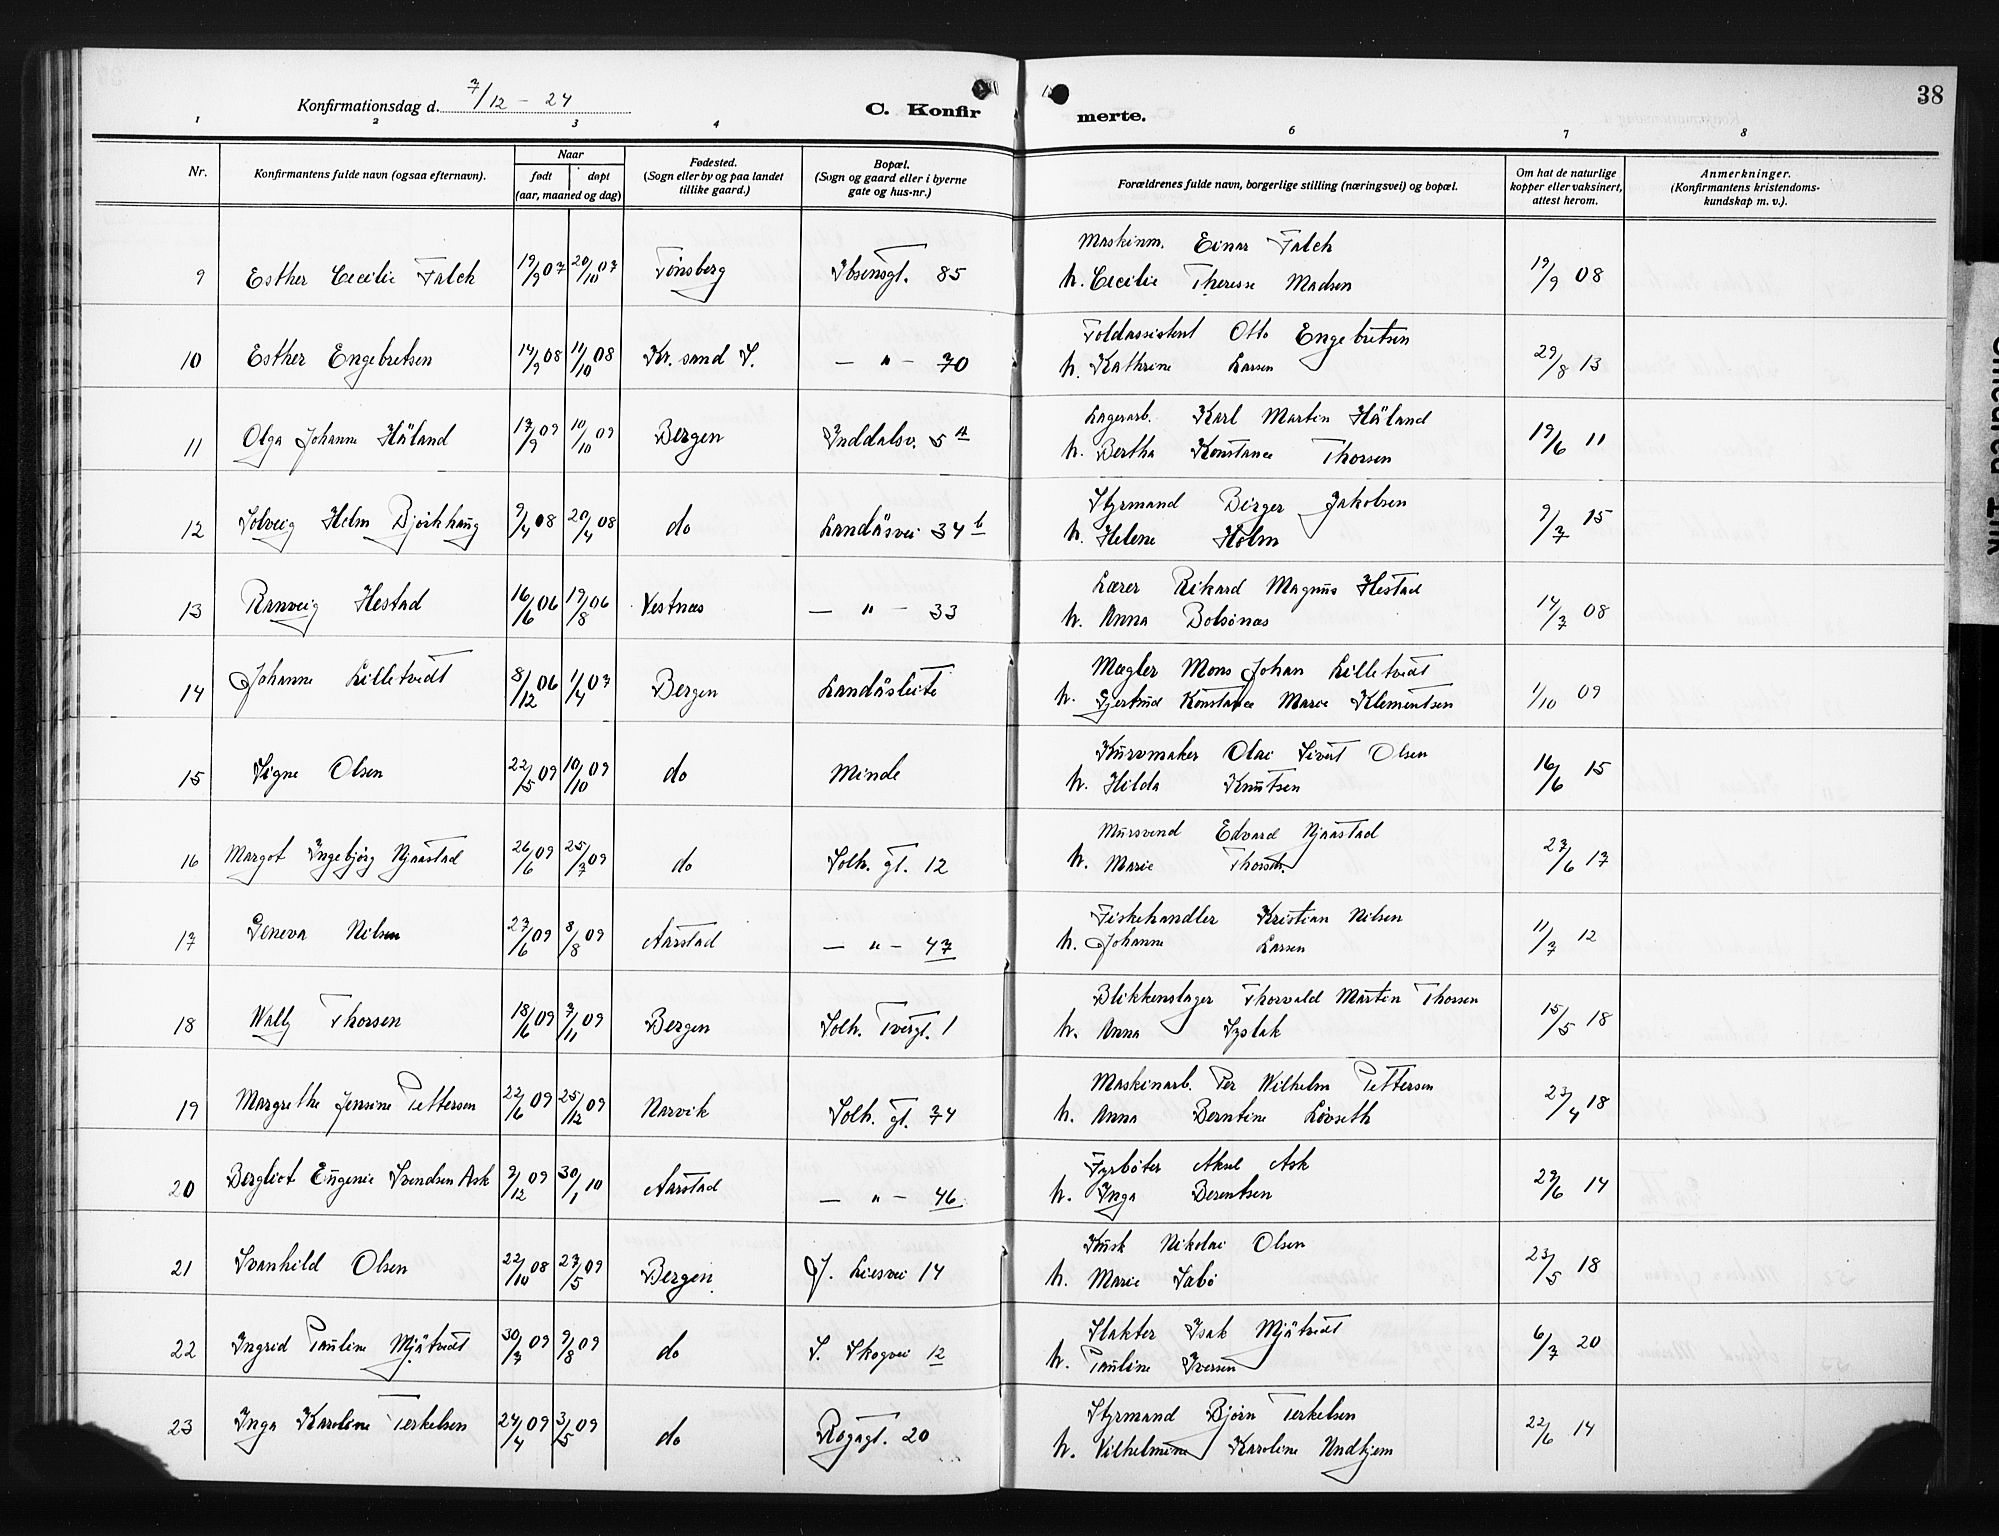 38
Konfirmationsdag d. 7/12 - 24
C. Konfir merte.
1 2 3 4 6 7 8
Nr.
Konfirmantens fulde navn (ogsaa efternavn).
Naar
født døpt
(aar, maaned og dag)
Fødested.
(Sogn eller by og paa landet
tillike gaard.)
Bopæl.
(Sogn og gaard eller i byerne
gate og hus-nr.)
Forældrenes fulde navn, borgerlige stilling (næringsvei) og bopæl.
Om hat de naturlige
kopper eller vaksinert,
attest herom.
Anmerkninger.
(Konfirmantens kristendoms-
kundskap m. v.).
Maskinm. Einar Falch
9 Esther Cecilie Falck 19/9 07 20/10 07 Tønsberg Ibsensgt. 85 h. Cecilie Theresse Madsen 19/9 08
Toldassistent Otto Engebretsen
10 Esther Engebretsen 14/9 08 11/10 08 Kr. sand S. — " — 70 h. Kathrine Larsen 29/8 13
Lagerarb. Karl Martin Håland
11 Olga Johanne Håland 17/9 09 10/10 09 Bergen Inddalsv. 5 a h. Bertha Konstance Thorsen 19/6 11
Styrmand Birger Jakobsen
12 Solveig Helm Bjørkhaug 9/4 08 20/4 08 do Landåsvei 34 b h. Helene Holm 9/7 15
Lærer Rikard Magnus Hestad
13 Ranveig Hestad 16/6 06 19/8 06 Vestnes — " — 33 h. Anna Bolsønes 14/7 08
Mægler Mons Johan Lilletvedt
14 Johanne Lilletvedt 8/12 06 1/4 07 Bergen Landåsleite h. Gjertrud Konstance Marie Klementsen 1/10 09
Kurvmaker Olai Sivert Olsen
15 Signe Olsen 22/5 09 10/10 09 do Minde h. Hilda Knutsen 16/6 15
Mursvend Edvard Njaastad
16 Margot Ingebjørg Njaastad 26/6 09 25/7 09 do Solh. gt. 12 h. Marie 27/6 17
Fiskehandler Kristian Nilsen
17 Geneva Nilsen 27/6 09 8/8 09 Aarstad — " — 47 h. Johanne Larsen 11/7 12
Blikkenslager Thorvald Martin Thorsen
18 Wally Thorsen 18/6 09 7/11 09 Bergen Solh. Tvergt. 1 h. Anna Syslak 15/5 18
Maskinarb. Per Wilhelm Pettersen
19 Margrethe Jensine Pettersen 22/6 09 25/12 09 Narvik Solh. gt. 74 h. Anna Berntine Løvseth 23/4 18
Fyrbøter Aksel Ask
20 Bergliot Eugenie Svendsen Ask 9/12 09 30/1 10 Aarstad — " — 46 h. Inga Berentsen 29/6 14
Kusk Nikolai Olsen
21 Svanhild Olsen 22/10 08 27/5 09 Bergen J. Liesvei 14 h. Marie Sabø 23/5 18
Slakter Isak Mjåtvedt
22 Ingrid Pauline Mjåtvedt 30/7 09 9/8 09 do S. Skogvei 12 h. Pauline Iversen 6/7 20
Styrmand Bjørn Terkelsen
23 Inga Karoline Terkelsen 24/4 09 3/5 09 do Rogagt. 20 h. Vilhelmine Karoline Undhjem 22/6 14